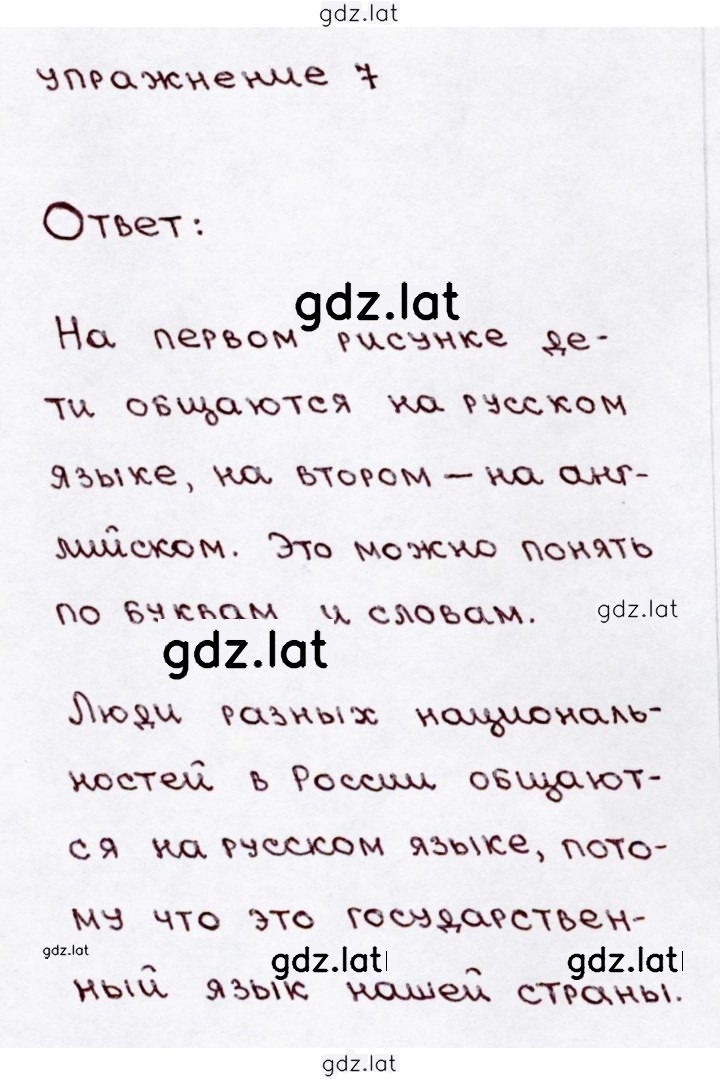 gdz.lat
упражнение 7
Ответ:
gdz.lat
На первом рисунке де-
ти общаются на русском
языке, на втором – на анг-
лийском. Это можно понять
по буквам и словам.
gdz.lat
gdz.lat
Люди разных националь-
ностей в России общают-
ся на русском языке, пото-
му что это государствен-
gdz.lat
gdz.lat
gdz.lat
ный язык нашей страны.
gdz.lat